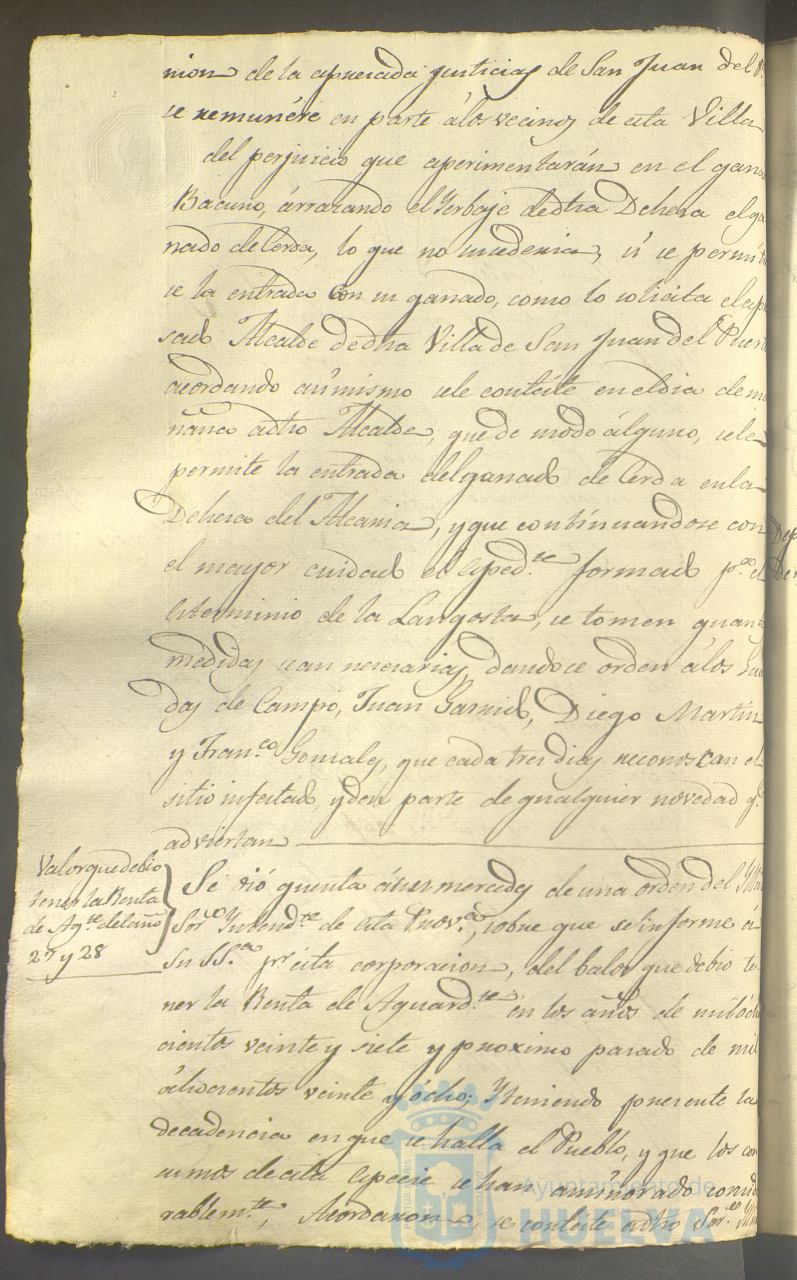 nion de la apresada justicias de San Juan del P.
se remunére en parte álos vecinos de esta Villa
del perjuicio que esperimentarán en el gana
Bacuno, árrazando el Yerbaje dedha Dehesa el ga
nado de Cerda, lo que no sucederia, si se permiti
se la entrada con su ganado, como lo solicita el
sado Alcalde dedha Villa de San Juan del Puert
acordando asímismo sele conteste en el dia de ma
ñana adho Alcalde, que de modo álguno, sele
permite la entrada del ganado de Cerda en la
Dehesa del Alcania, y que continuandose con
el mayor cuidado el Esped.te formado p.a el
Esterminio de la Langosta, se tomen quant
medidas sean necesarias, dandoce orden á los Gua
das de Campo, Juan Garrido, Diego Martin
y Fran.co Gonsales, que cada tres dias reconoscan el
sitio infestado, y den parte de qualquier novedad q.
adviertan
Valor que debio
tener la Renta
de Ag.te del año
27 y 28
Se vió quenta ásus mercedes de una orden del Yll
Sor. Yntend.te de esta Prov.ca, sobre que se informe á
Su SS.a pr. esta corporacion, del balor que debio te
ner la Renta de Aguard.te en los años de mil óch
cientos veinte y siete y proximo pasado de mil
óchocientos veinte y ócho; Yteniendo presente la
decadencia en que se halla el Pueblo, y que los con
sumos de esta especie se han aminorado consid
rablem.te, Acordaron se conteste adho Sor.
Ayuntamiento de
HUELVA